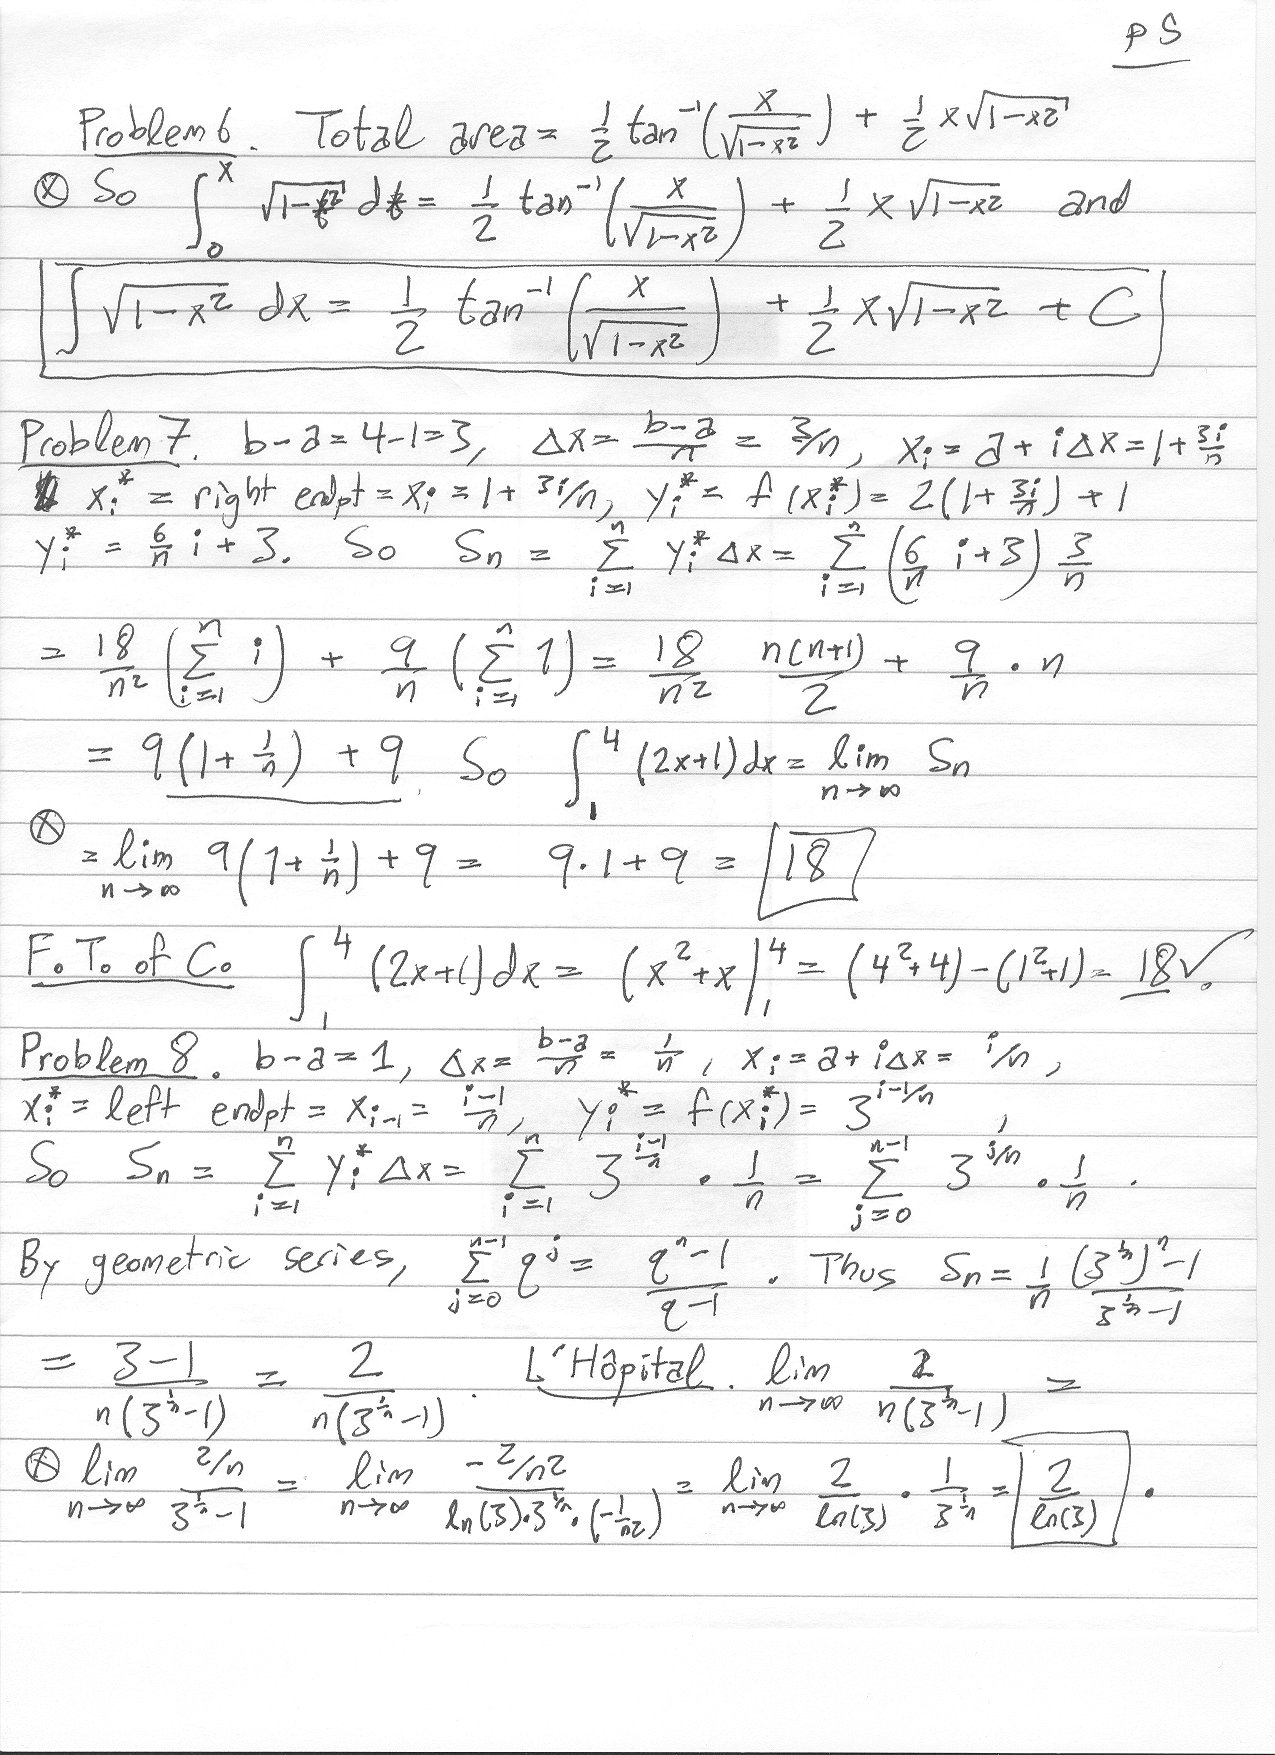 p5
Problem 6. Total area = 1/2 tan⁻¹(x/√(1-x²)) + 1/2 x√(1-x²)
⊗ So ∫₀ˣ √(1-t²) dt = 1/2 tan⁻¹(x/√(1-x²)) + 1/2 x√(1-x²) and
∫√(1-x²) dx = 1/2 tan⁻¹(x/√(1-x²)) + 1/2 x√(1-x²) + C
Problem 7. b-a=4-1=3, Δx = (b-a)/n = 3/n, xᵢ = a + iΔx = 1+3i/n
xᵢ* = right endpt = xᵢ = 1+ 3i/n, yᵢ* = f(xᵢ*) = 2(1+3i/n)+1
yᵢ* = 6/n i + 3. So Sn = Σ_{i=1}^{n} yᵢ* Δx = Σ_{i=1}^{n} (6/n i+3) 3/n
= 18/n² (Σ_{i=1}^{n} i) + 9/n (Σ_{i=1}^{n} 1) = 18/n² n(n+1)/2 + 9/n · n
= 9(1+1/n) + 9. So ∫₁⁴ (2x+1)dx = lim_{n→∞} Sn
⊗ = lim_{n→∞} 9(1+1/n)+9 = 9·1+9 = 18
F.T. of C. ∫₁⁴ (2x+1)dx = (x²+x|₁⁴ = (4²+4)-(1²+1) = 18 ✓.
Problem 8. b-a=1, Δx = (b-a)/n = 1/n, xᵢ = a+iΔx = i/n,
xᵢ* = left endpt = xᵢ₋₁ = (i-1)/n, yᵢ* = f(xᵢ*) = 3^{i-1/n},
So Sn = Σ_{i=1}^{n} yᵢ* Δx = Σ_{i=1}^{n} 3^{(i-1)/n} · 1/n = Σ_{j=0}^{n-1} 3^{j/n} · 1/n.
By geometric series, Σ_{j=0}^{n-1} q^j = (qⁿ-1)/(q-1). Thus Sn = 1/n ((3^{1/n})ⁿ-1)/(3^{1/n}-1)
= (3-1)/(n(3^{1/n}-1)) = 2/(n(3^{1/n}-1)). L'Hôpital. lim_{n→∞} 2/(n(3^{1/n}-1)) =
⊗ lim_{n→∞} (2/n)/(3^{1/n}-1) = lim_{n→∞} (-2/n²)/(ln(3)·3^{1/n}·(-1/n²)) = lim_{n→∞} 2/ln(3) · 1/3^{1/n} = 2/ln(3).